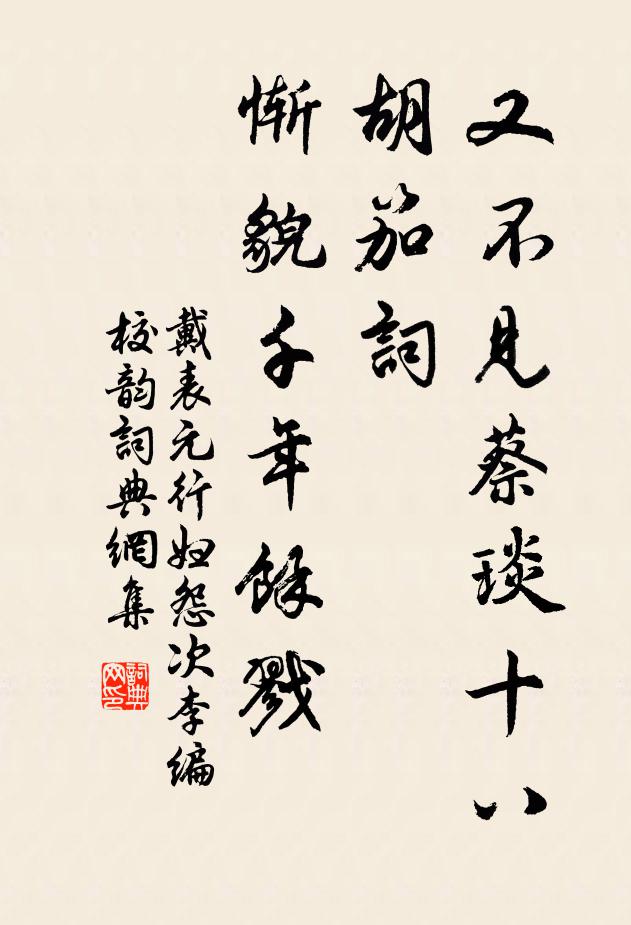 又不見蔡琰十八
胡笳詞
慚貌千年餘戮
戴表元行妇怨次李编
校韵詞典網集
詞典
网印